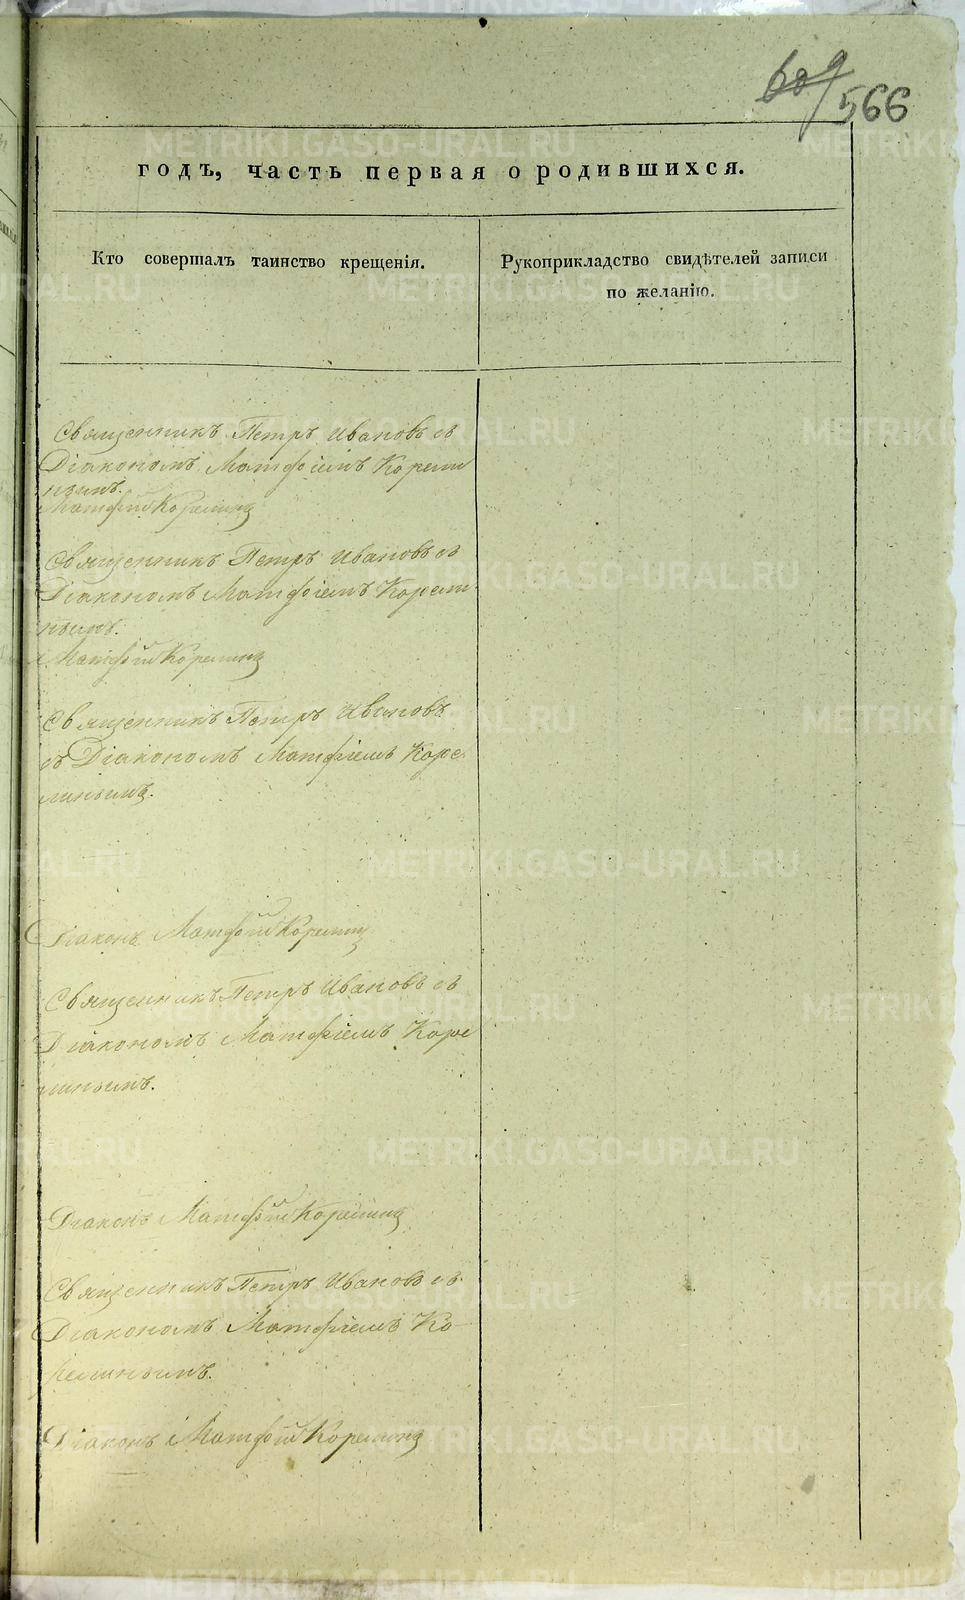 609/566
годъ, часть первая о родившихся.
Кто совершалъ таинство крещенія.
Рукоприкладство свидѣтелей записи
по желанію.
Священникъ Петръ Ивановъ съ
Діакономъ Матфіемъ Корели
нымъ.
Матфій Корелинъ
Священникъ Петръ Ивановъ съ
Діакономъ Матфіемъ Корели
нымъ.
Матфій Корелинъ
Священникъ Петръ Ивановъ
съ Діакономъ Матфіемъ Коре
линымъ.
Діаконъ Матфій Корелинъ
Священникъ Петръ Ивановъ съ
Діакономъ Матфіемъ Коре
линымъ.
Діаконъ Матфій Корелинъ
Священникъ Петръ Ивановъ съ
Діакономъ Матфіемъ Ко-
релинымъ.
Діаконъ Матфій Корелинъ
METRIKI.GASO-URAL.RU